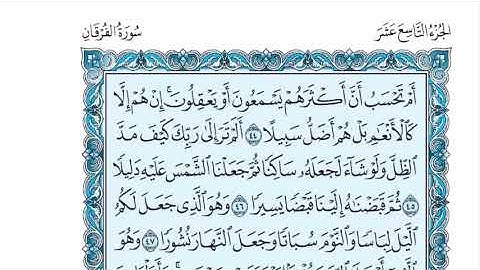 الجزء التاسع عشر
سورة الفرقان
أَمْ تَحْسَبُ أَنَّ أَكْثَرَهُمْ يَسْمَعُونَ أَوْ يَعْقِلُونَ ۚ إِنْ هُمْ إِلَّا
كَالْأَنْعَامِ بَلْ هُمْ أَضَلُّ سَبِيلًا ٤٤ أَلَمْ تَرَ إِلَىٰ رَبِّكَ كَيْفَ مَدَّ
الظِّلَّ وَلَوْ شَاءَ لَجَعَلَهُ سَاكِنًا ثُمَّ جَعَلْنَا الشَّمْسَ عَلَيْهِ دَلِيلًا
٤٥ ثُمَّ قَبَضْنَاهُ إِلَيْنَا قَبْضًا يَسِيرًا ٤٦ وَهُوَ الَّذِي جَعَلَ لَكُمُ
اللَّيْلَ لِبَاسًا وَالنَّوْمَ سُبَاتًا وَجَعَلَ النَّهَارَ نُشُورًا ٤٧ وَهُوَ